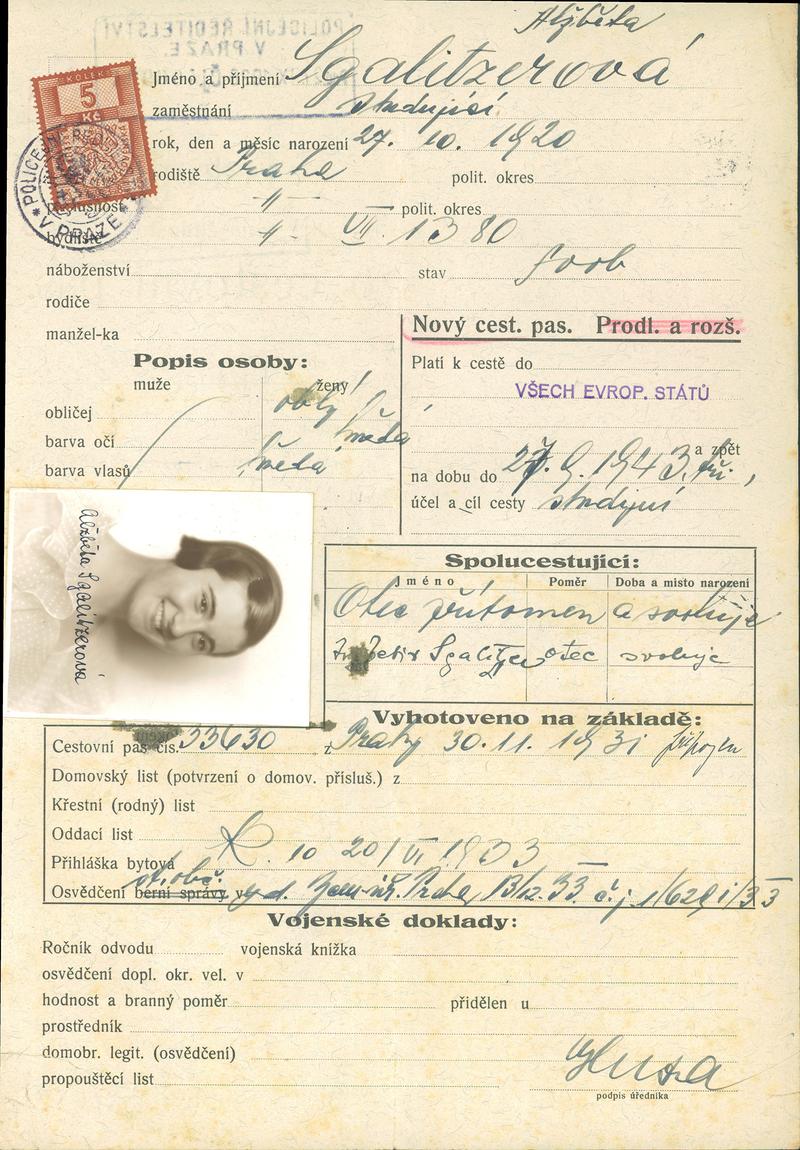 Alžběta
Jméno a příjmení Sgalitzerová
KOLEK
5
Kč
zaměstnání studující
rok, den a měsíc narození 27. 10. 1920
rodiště Praha polit. okres
příslušnost -"- polit. okres
bydliště -"- VII. 1380
V PRAZE
náboženství stav svob
rodiče
manžel-ka
Nový cest. pas. Prodl. a rozš.
Popis osoby:
muže ženy
obličej oblý
barva očí šedá
barva vlasů šedá
Platí k cestě do
VŠECH EVROP. STÁTŮ
a zpět
na dobu do 27. 9. 1943
účel a cíl cesty studijní
Alžběta Sgalitzerová
Spolucestující:
Jméno Poměr Doba a místo narození
Otec přítomen a svoluje
Sgalitzer otec svoluje
Vyhotoveno na základě:
Cestovní pas čís. 33630 z Prahy 30. 11. 1931 připojen
Domovský list (potvrzení o domov. přísluš.) z
Křestní (rodný) list
Oddací list
Přihláška bytová 10 20/VI 1933
Osvědčení berní správy v Praha, 13/12. 33. č. j.
Vojenské doklady:
Ročník odvodu vojenská knížka
osvědčení dopl. okr. vel. v
hodnost a branný poměr přidělen u
prostředník
domobr. legit. (osvědčení)
propouštěcí list
podpis úředníka